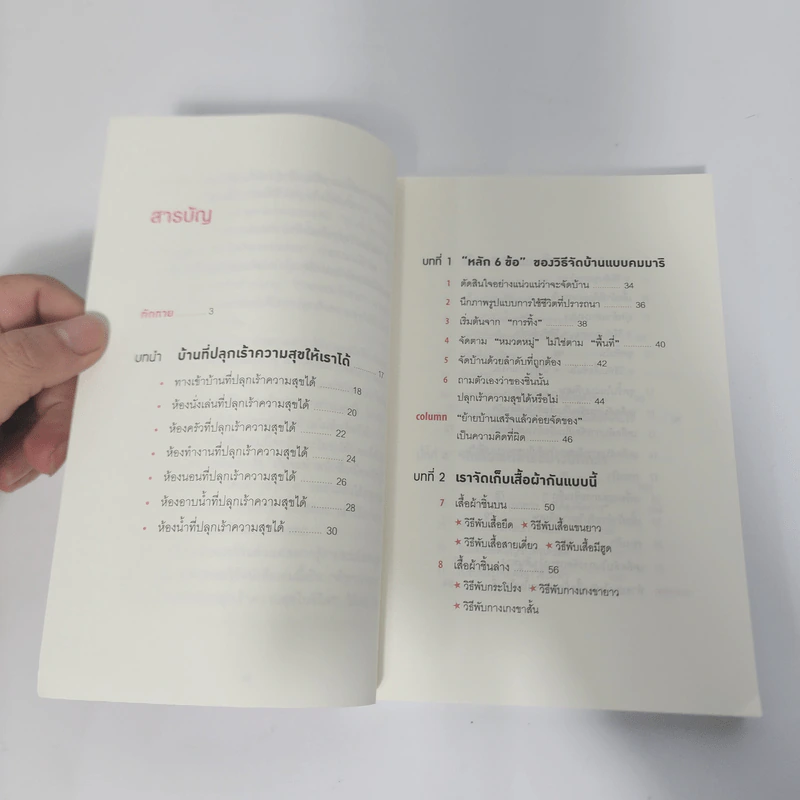 สารบัญ
ทักทาย ........ 3
บทนำ บ้านที่ปลุกเร้าความสุขให้เราได้ ........ 17
• ทางเข้าบ้านที่ปลุกเร้าความสุขได้ ........ 18
• ห้องนั่งเล่นที่ปลุกเร้าความสุขได้ ........ 20
• ห้องครัวที่ปลุกเร้าความสุขได้ ........ 22
• ห้องทำงานที่ปลุกเร้าความสุขได้ ........ 24
• ห้องนอนที่ปลุกเร้าความสุขได้ ........ 26
• ห้องอาบน้ำที่ปลุกเร้าความสุขได้ ........ 28
• ห้องน้ำที่ปลุกเร้าความสุขได้ ........ 30
บทที่ 1 “หลัก 6 ข้อ” ของวิธีจัดบ้านแบบคมมาริ
1 ตัดสินใจอย่างแน่วแน่ว่าจะจัดบ้าน ........ 34
2 นึกภาพรูปแบบการใช้ชีวิตที่ปรารถนา ........ 36
3 เริ่มต้นจาก “การทิ้ง” ........ 38
4 จัดตาม “หมวดหมู่” ไม่ใช่ตาม “พื้นที่” ........ 40
5 จัดบ้านด้วยลำดับที่ถูกต้อง ........ 42
6 ถามตัวเองว่าของชิ้นนั้น
ปลุกเร้าความสุขได้หรือไม่ ........ 44
column “ย้ายบ้านเสร็จแล้วค่อยจัดของ”
เป็นความคิดที่ผิด ........ 46
บทที่ 2 เราจัดเก็บเสื้อผ้ากันแบบนี้
7 เสื้อผ้าชิ้นบน ........ 50
★ วิธีพับเสื้อยืด ★ วิธีพับเสื้อแขนยาว
★ วิธีพับเสื้อสายเดี่ยว ★ วิธีพับเสื้อมีฮูด
8 เสื้อผ้าชิ้นล่าง ........ 56
★ วิธีพับกระโปรง ★ วิธีพับกางเกงขายาว
★ วิธีพับกางเกงขาสั้น